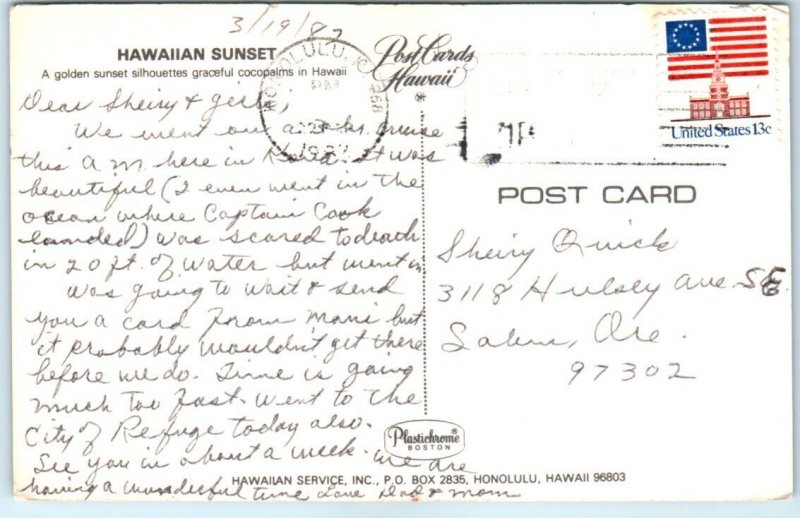 3/19/82
HAWAIIAN SUNSET
A golden sunset silhouettes graceful cocopalms in Hawaii
Post Cards
Hawaii
HONOLULU,
PM
United States 13c
POST CARD
Dear Sheiry & girls,
We went on a hr. cruise
this A M here in Kona. It was
beautiful (I even went in the
ocean where Captain Cook
landed) was scared to death
in 20 ft. of water but went in.
Was going to wait & send
you a card from Maui but
it probably wouldn't get there
before we do. Time is going
much too fast. Went to the
City of Refuge today also.
See you in about a week. We are
having a wonderful time Love Dad & Mom
Sheiry Quick
3118 Hulsey Ave SE
Salem, Ore.
97302
Plastichrome®
BOSTON
HAWAIIAN SERVICE, INC., P.O. BOX 2835, HONOLULU, HAWAII 96803